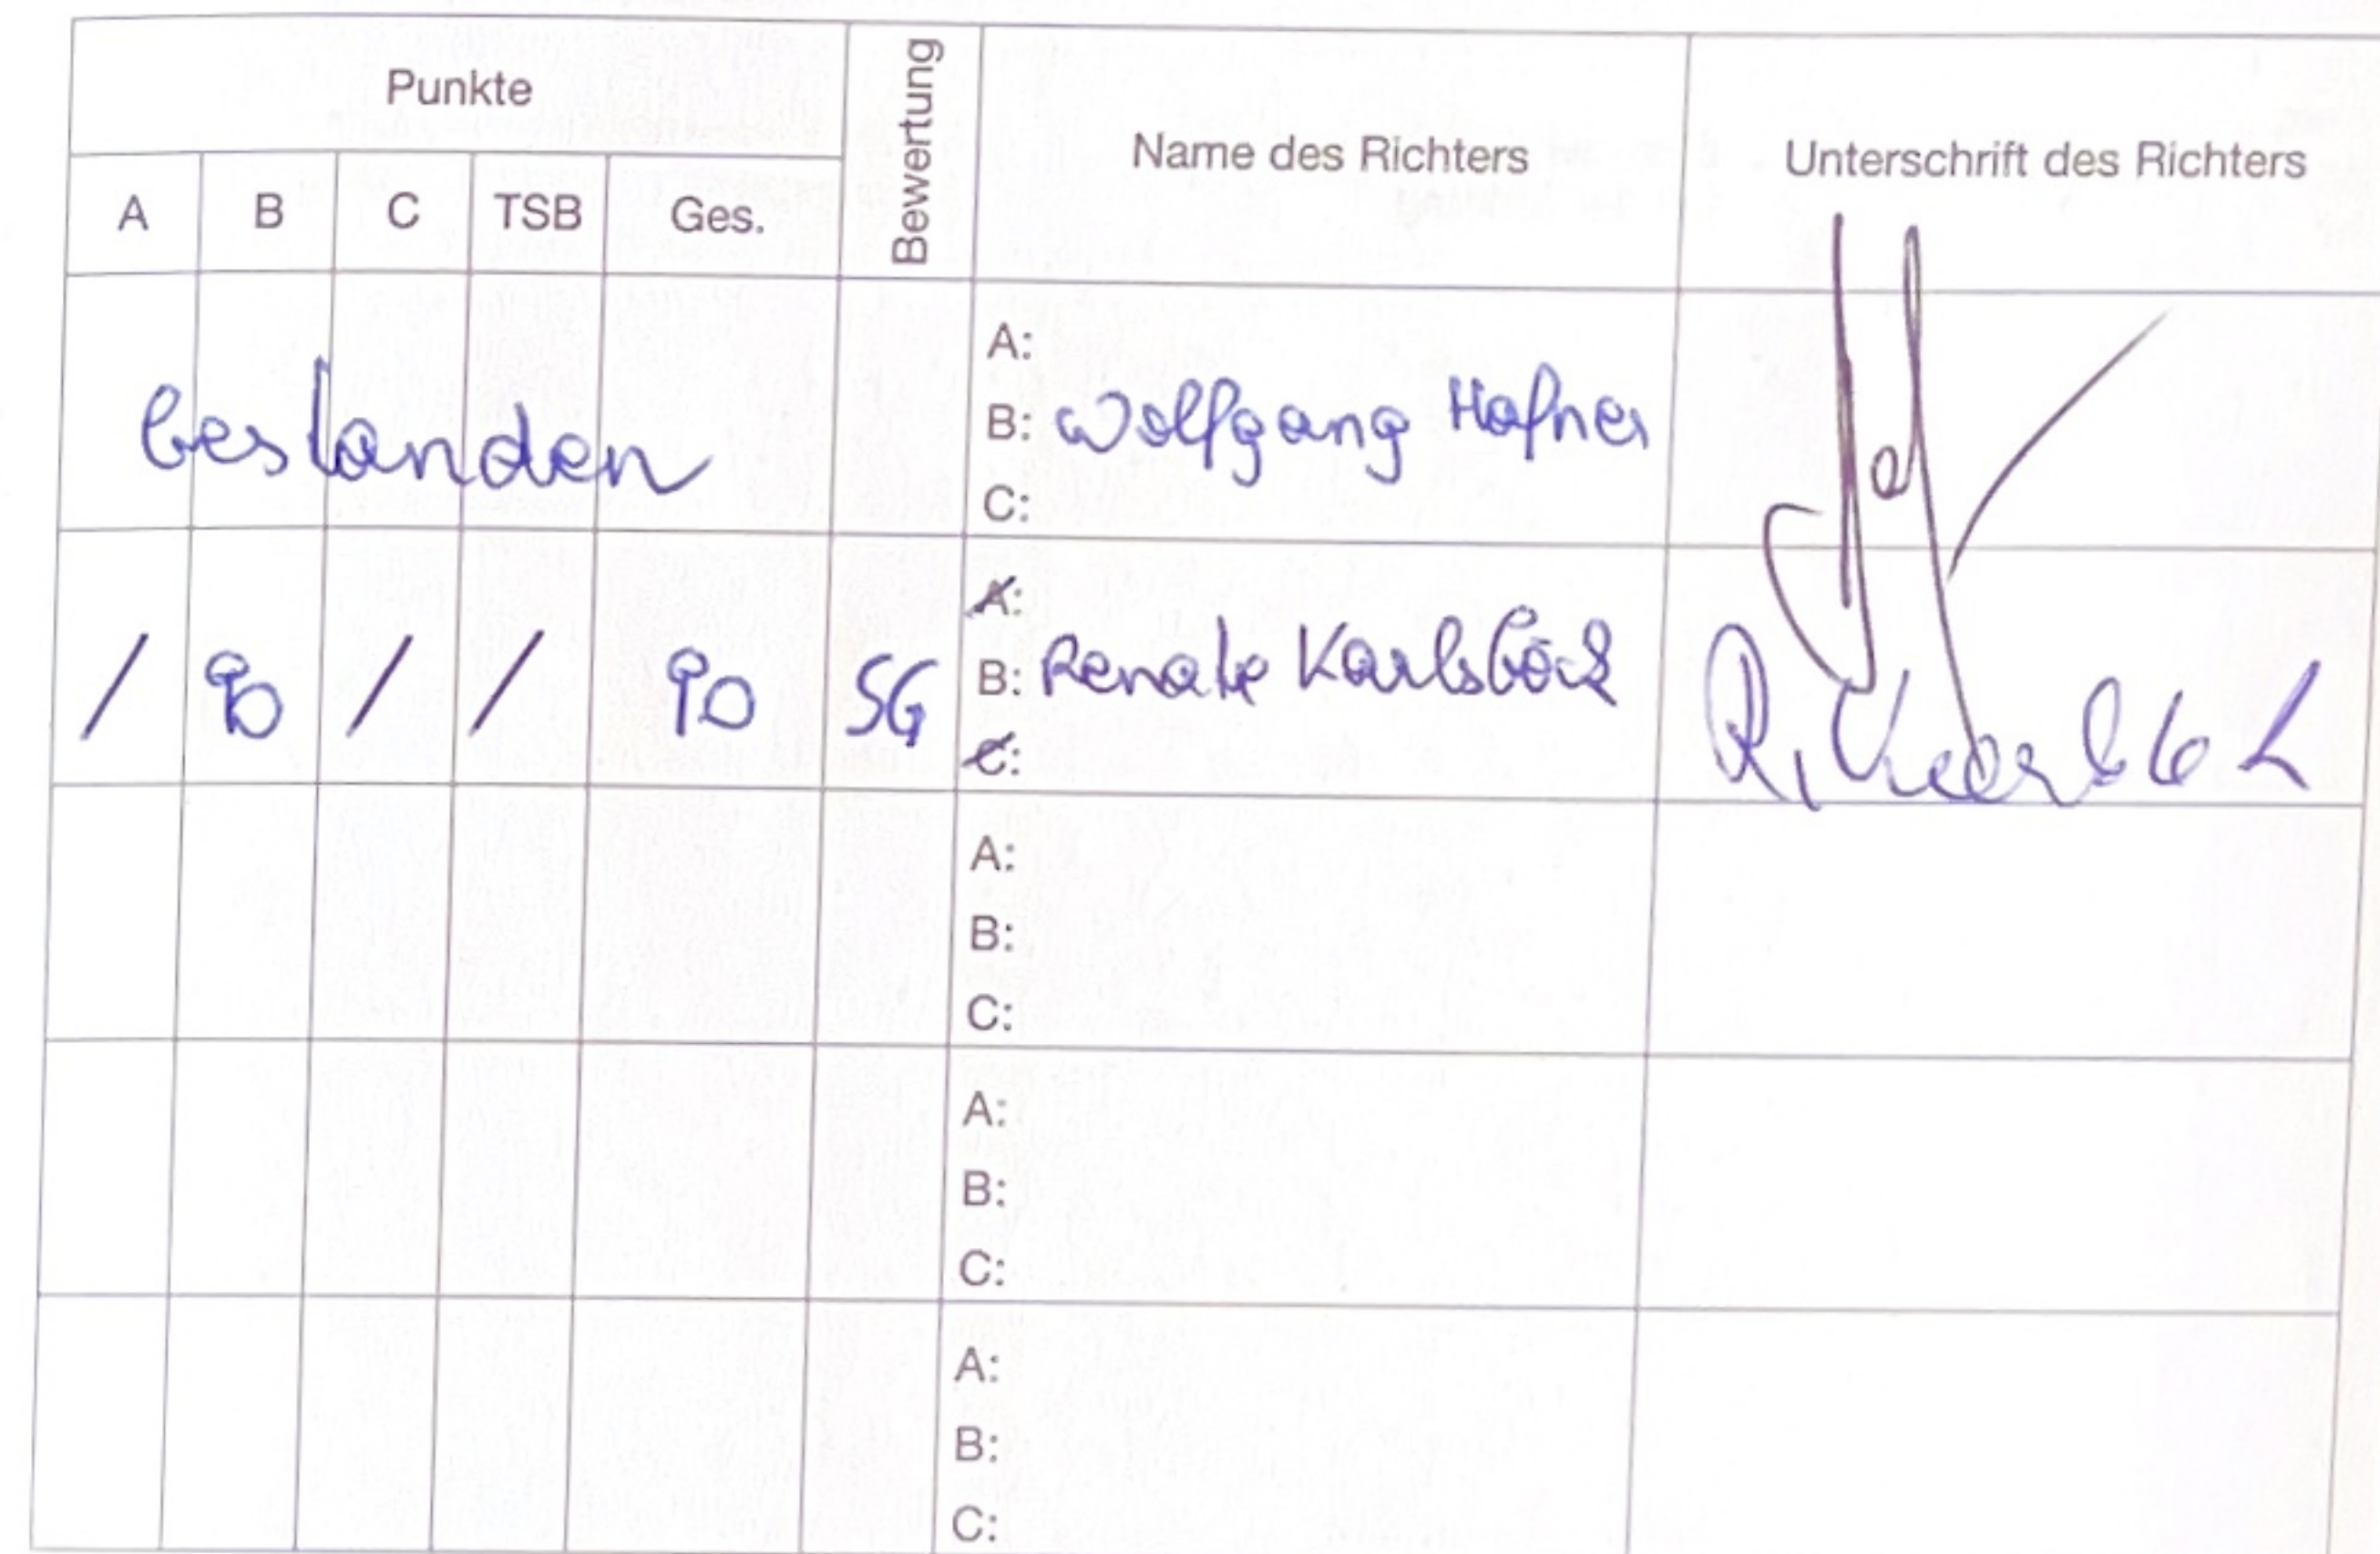 Punkte
Bewertung
Name des Richters
Unterschrift des Richters
A B C TSB Ges.
bestanden
A:
B: Wolfgang Hafner
C:
/ 90 / / 90 SG
A:
B: Renate Karlsböck
C:
A:
B:
C:
A:
B:
C:
A:
B:
C: